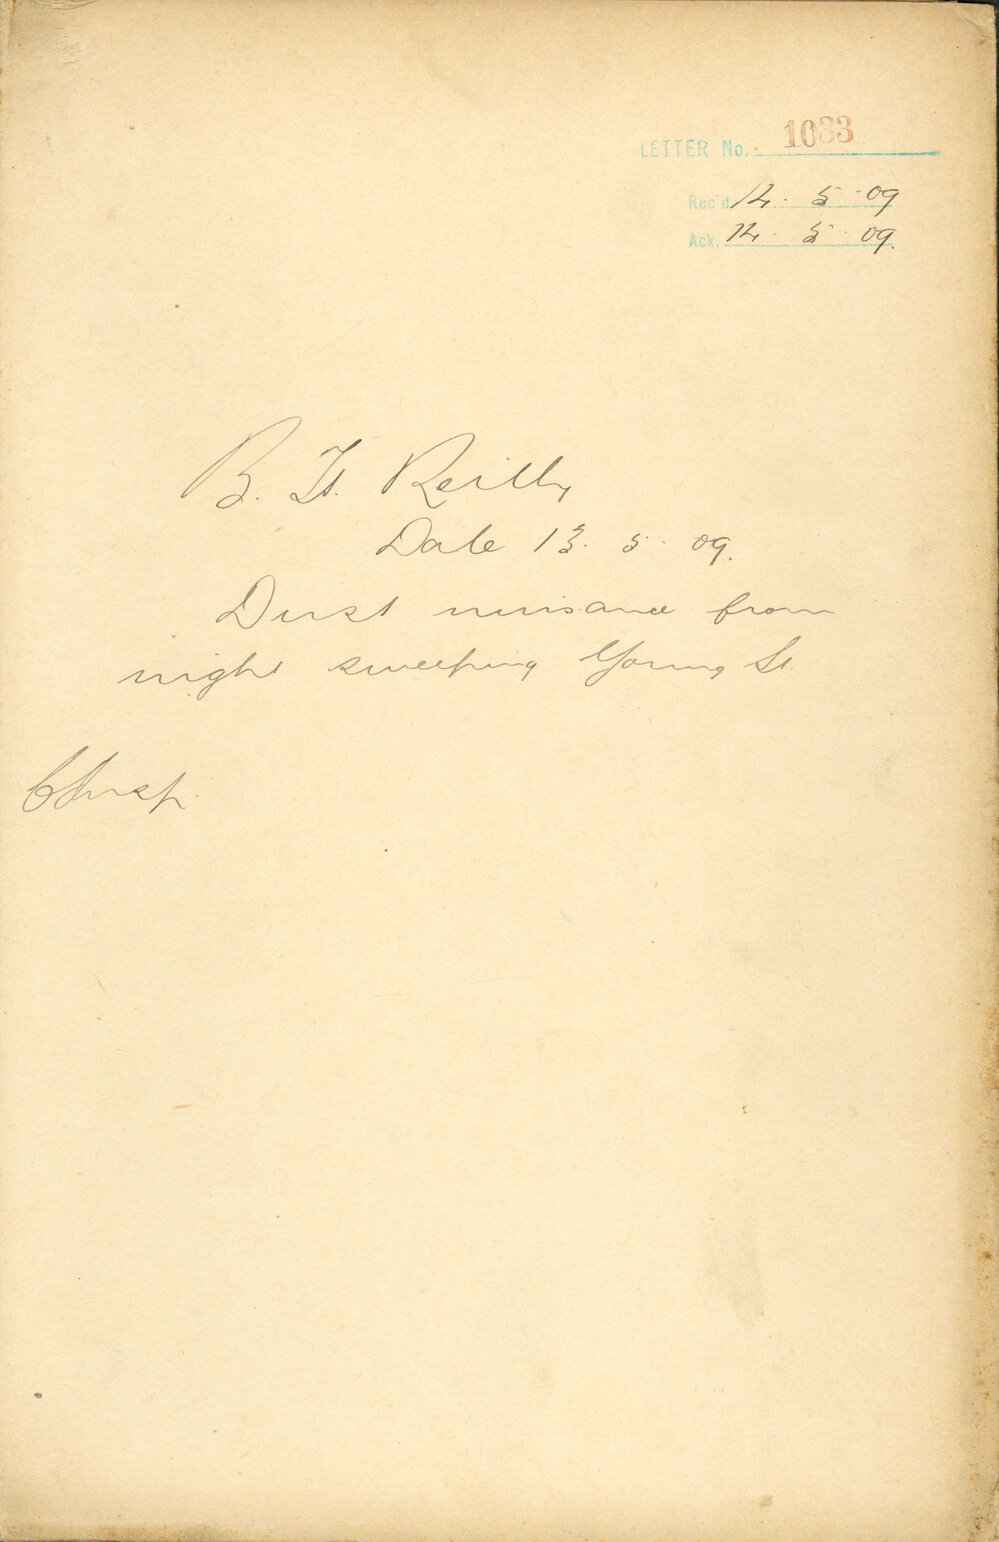 LETTER No. 1033
Rec'd 14. 5. 09
Ack. 14. 5. 09.
B. H. Reilly
Date 13. 5. 09.
Dust nuisance from
night sweeping Young St.
C Insp.